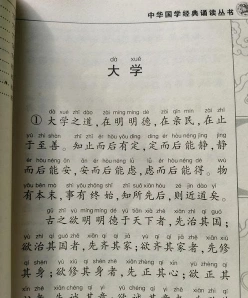 中华国学经典诵读丛书
dà xué
大学
dà xué zhī dào zài míng míng dé zài qīn mín zài zhǐ
①大学之道,在明明德,在亲民,在止
yú zhì shàn zhī zhǐ ér hòu yǒu dìng dìng ér hòu néng jìng jìng
于至善。知止而后有定,定而后能静,静
ér hòu néng ān ān ér hòu néng lǜ lǜ ér hòu néng dé wù
而后能安,安而后能虑,虑而后能得。物
yǒu běn mò shì yǒu zhōng shǐ zhī suǒ xiān hòu zé jìn dào yǐ
有本末,事有终始,知所先后,则近道矣。
gǔ zhī yù míng míng dé yú tiān xià zhě xiān zhì qí guó
古之欲明明德于天下者,先治其国;
yù zhì qí guó zhě xiān qí qí jiā yù qí qí jiā zhě xiān xiū
欲治其国者,先齐其家;欲齐其家者,先修
qí shēn yù xiū qí shēn zhě xiān zhèng qí xīn yù zhèng qí
其身;欲修其身者,先正其心;欲正其